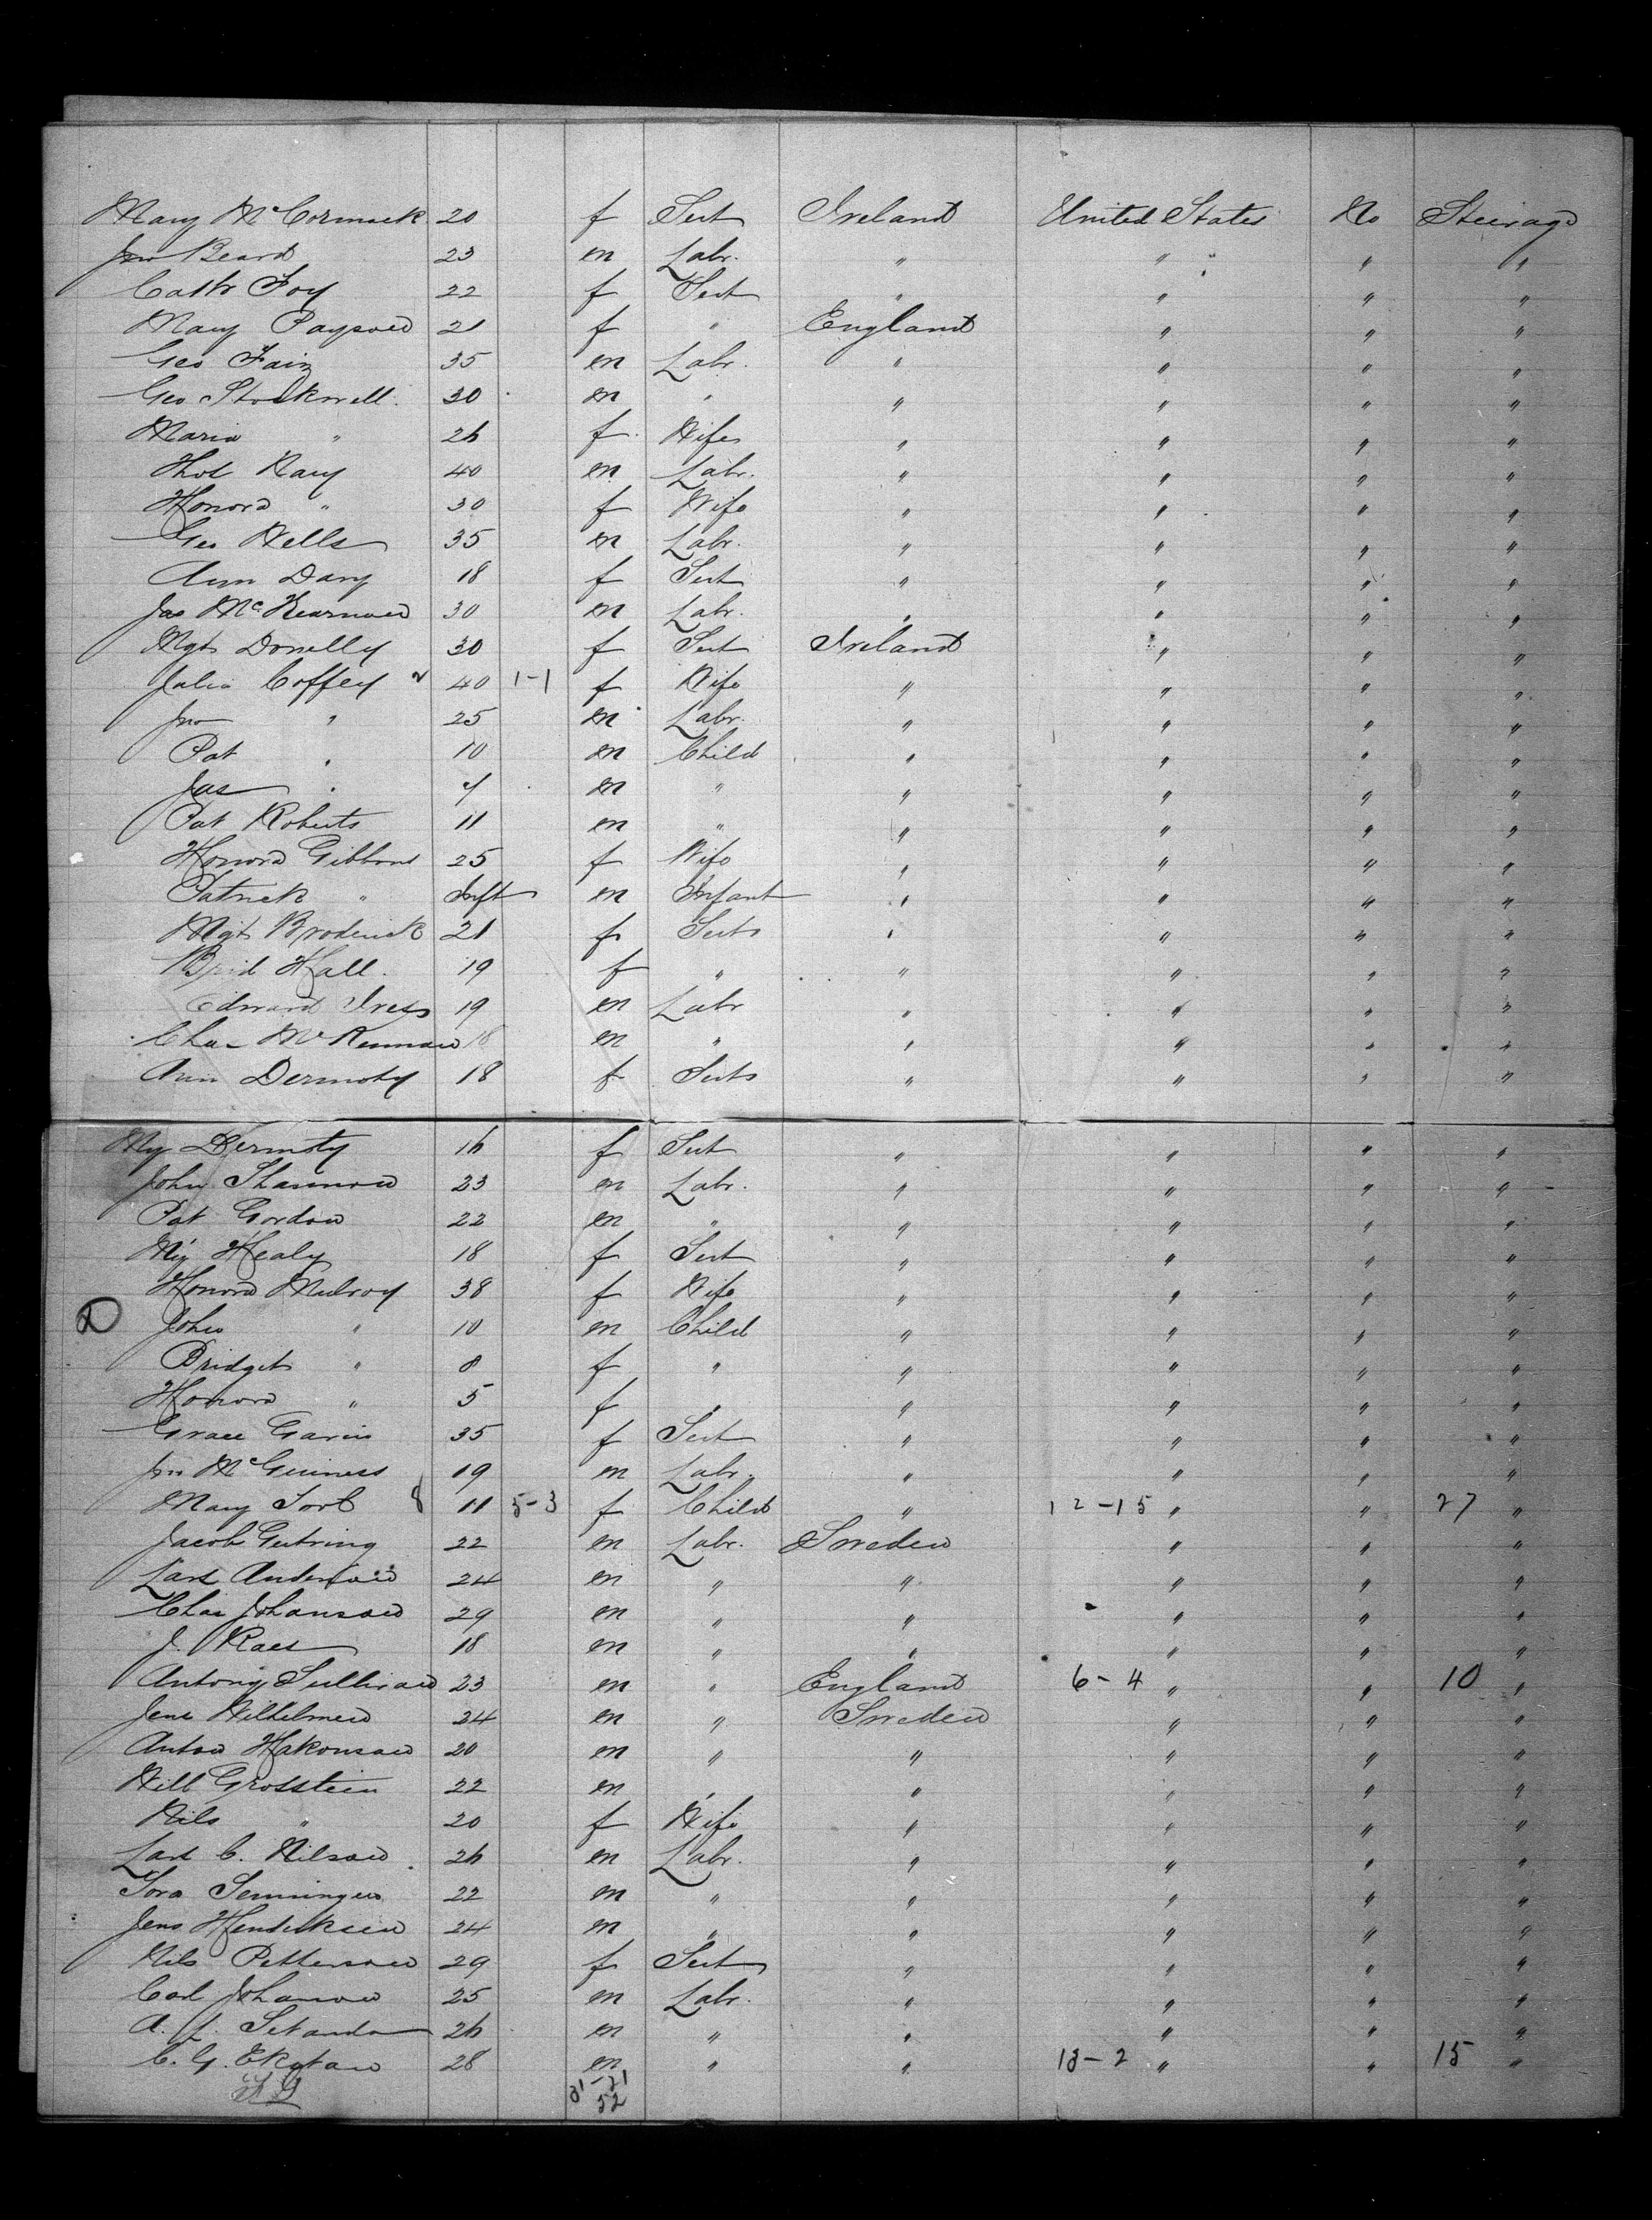 Mary McCormack 20 f Sert Ireland United States No Steerage
Jno Beard 23 m Labr. " " " "
Cath Foy 22 f Sert " " " "
Mary Payson 21 f " England " " "
Geo Fair 35 m Labr. " " " "
Geo Stockwell 30 m " " " " "
Maria " 26 f Wife " " " "
Thos 40 m Labr. " " " "
Honora " 30 f Wife " " " "
Geo Wells 35 m Labr. " " " "
Ann Dary 18 f Sert " " " "
Jas McKearnon 30 m Labr. " " " "
Mgt Donelly 30 f Sert Ireland " " "
Julia Coffey 2 40 1-1 f Wife " " " "
Jno " 25 m Labr. " " " "
Pat " 10 m Child " " " "
Jas " 7 m " " " " "
Pat Roberts 11 m " " " " "
Honora Gibbons 25 f Wife " " " "
Patrick " Inft m Infant " " " "
Mgt Broderick 21 f Sert " " " "
Brid Hall 19 f " " " " "
Edward 19 m Labr " " " "
Chas 18 m " " " " "
Ann Dermoty 18 f Sert " " " "
My Dermoty 16 f Sert " " " "
John Shannon 23 m Labr. " " " "
Pat Gordon 22 m " " " " "
My Healy 18 f Sert " " " "
Honora Mulroy 38 f Wife " " " "
D John " 10 m Child " " " "
Bridget " 8 f " " " " "
Honora " 5 f " " " " "
Grace Gavin 35 f Sert " " " "
Jno McGuiness 19 m Labr. " " " "
Mary 8 11 5-3 f Child " 12-15 " " 27 "
Jacob Gutring 22 m Labr. Sweden " " "
Lars Anderson 24 m " " " " "
Chas Johanson 29 m " " " " "
J. Raes 18 m " " " " "
Antony Sullivan 23 m " England 6-4 " " 10 "
Jens Wilhelmen 24 m " Sweden " " "
Anton Hakonson 20 m " " " " "
Will Grosstein 22 m " " " " "
Nils " 20 f Wife " " " "
Lars C. Nilson 26 m Labr. " " " "
22 m " " " " "
Jens Hendriksen 24 m " " " " "
Nils Petterson 29 f Sert " " " "
Carl Johanson 25 m Labr. " " " "
A. J. 26 m " " " " "
C. G. Ekstan 28 m " " 13-2 " " 15 "
31-21
52